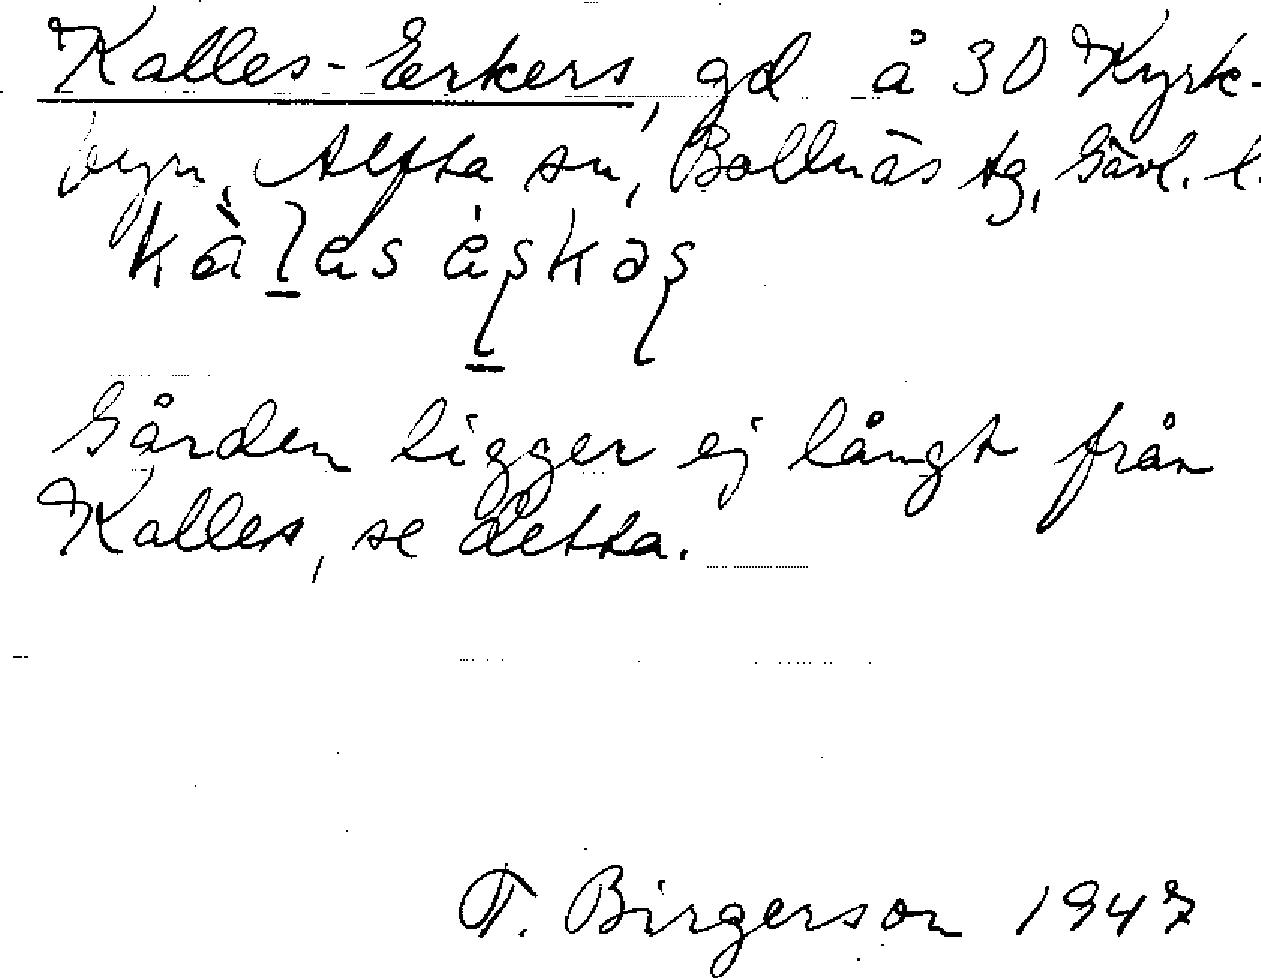 Kalles-Erkers, gd å 30 Kyrk-
byn, Alfta sn, Bollnäs tg, Gävl. l.
Gården ligger ej långt från
Kalles, se detta.
T. Birgerson 1947